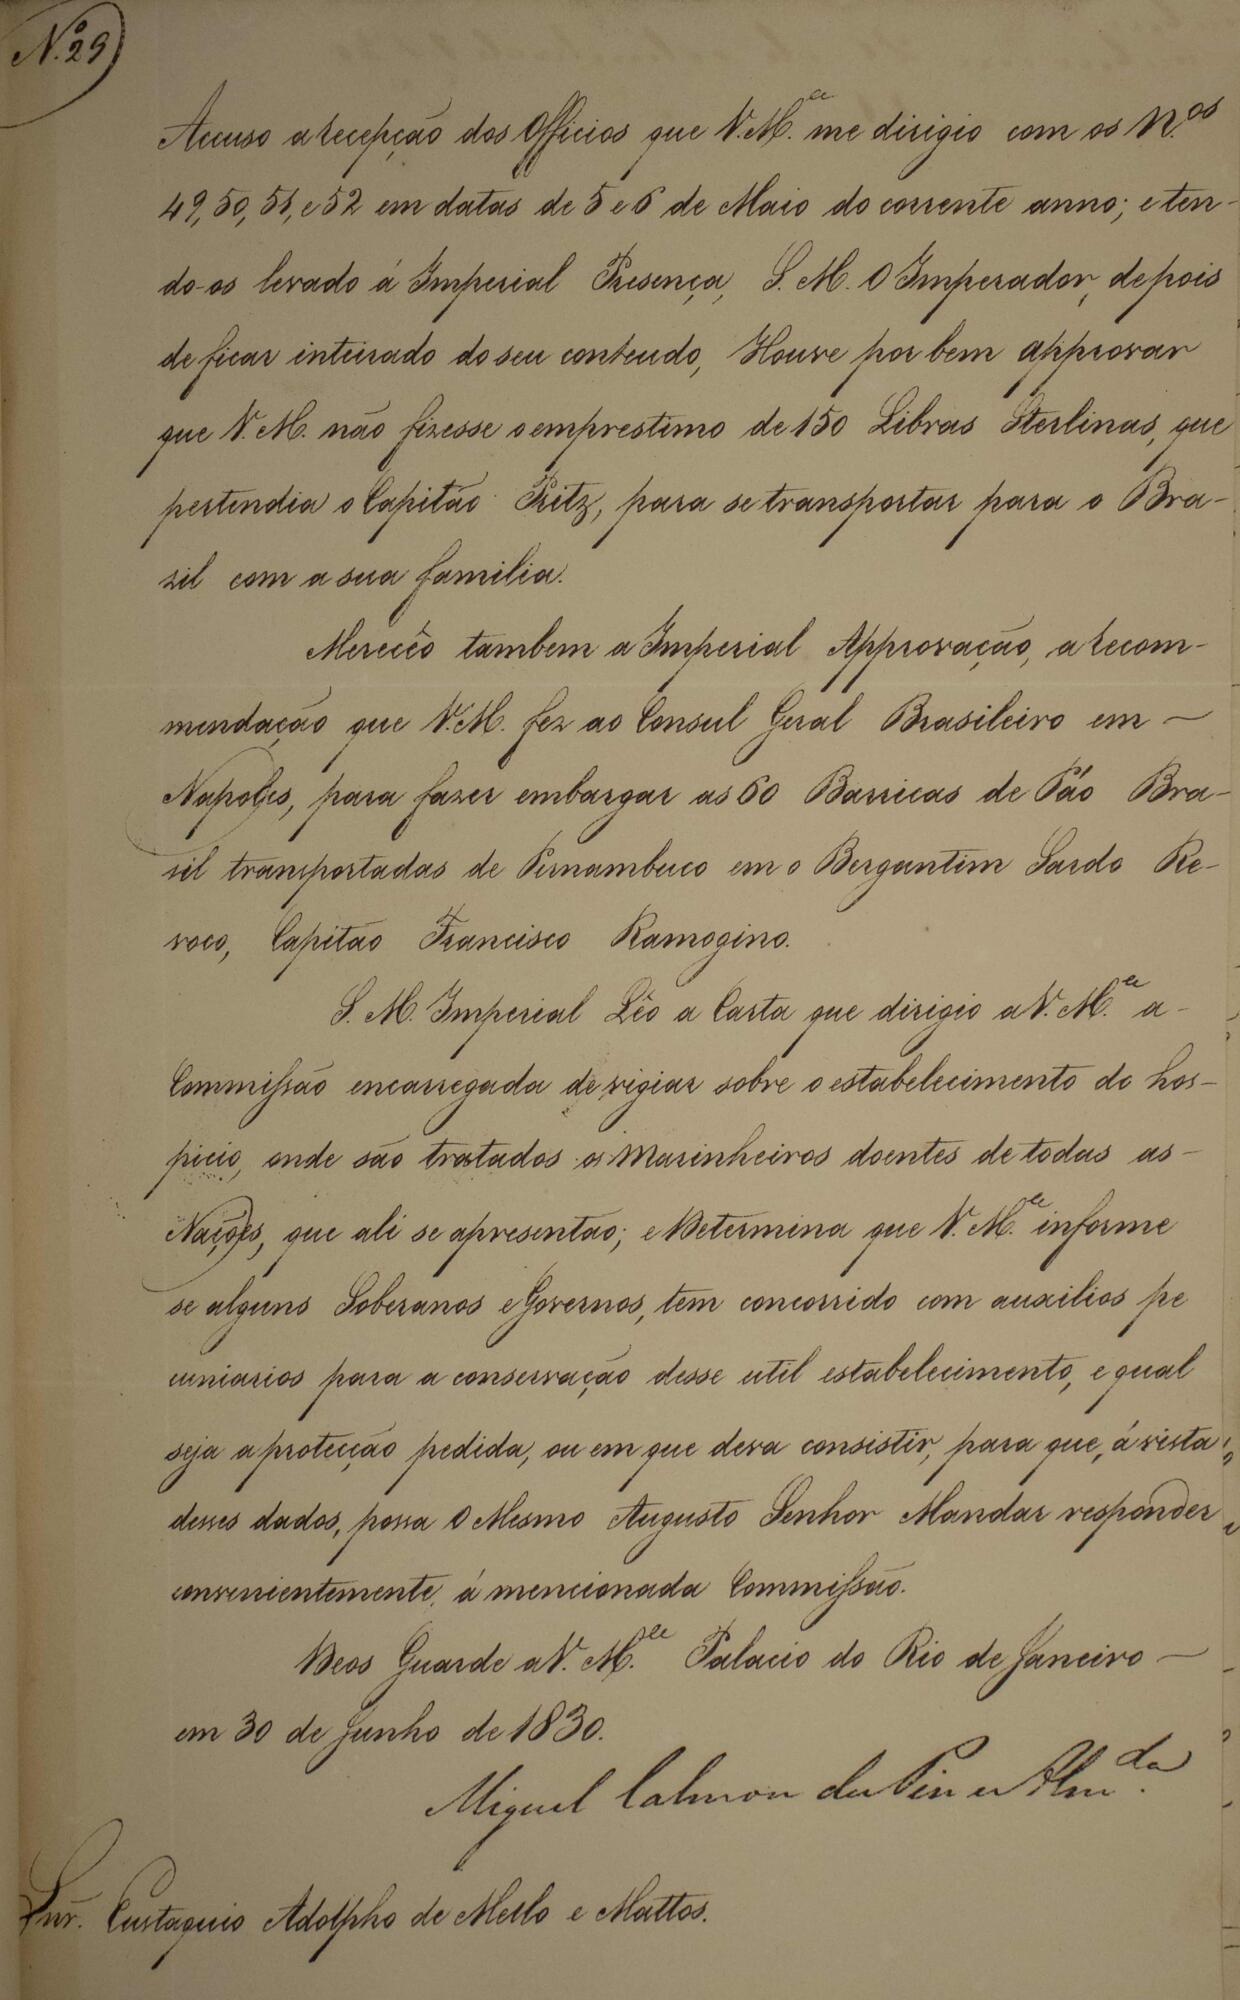 N.º 29
Accuso a recepção dos Officios que V.M.ce me dirigio com os N.os
49, 50, 51, e 52 em datas de 5 e 6 de Maio do corrente anno; e ten-
do-os levado á Imperial Presença, S. M. O Imperador, depois
de ficar inteirado do seu conteudo, Houve por bem approvar
que V. M. não fizesse o emprestimo de 150 Libras Sterlinas, que
pertendia o Capitão Pritz, para se transportar para o Bra-
zil com a sua familia.
Mereceo tambem a Imperial Approvação, a recom-
mendação que V. M. fez ao Consul Geral Brasileiro em -
Napoles, para fazer embargar as 60 Barricas de Páo Bra-
sil transportadas de Pernambuco em o Bergantim Sardo Re-
voco, Capitão Francisco Ramogino.
S. M. Imperial Lêo a Carta que dirigio a V. M.ce a -
Commissão encarregada de vigiar sobre o estabelecimento do hos-
picio, onde são tratados os Marinheiros doentes de todas as -
Nações, que ali se apresentão; e Determina que V. M.ce informe
se alguns Soberanos e Governos, tem concorrido com auxilios pe
cuniarios para a conservação desse util estabelecimento, e qual
seja a protecção pedida, ou em que deva consistir, para que, á vista
desses dados, possa O Mesmo Augusto Senhor Mandar responder
convenientemente, á mencionada Commissão.
Deos Guarde a V. M.ce Palacio do Rio de Janeiro -
em 30 de Junho de 1830.
Miguel Calmon du Pin e Alm.da
Snr. Eustaquio Adolpho de Mello e Mattos.